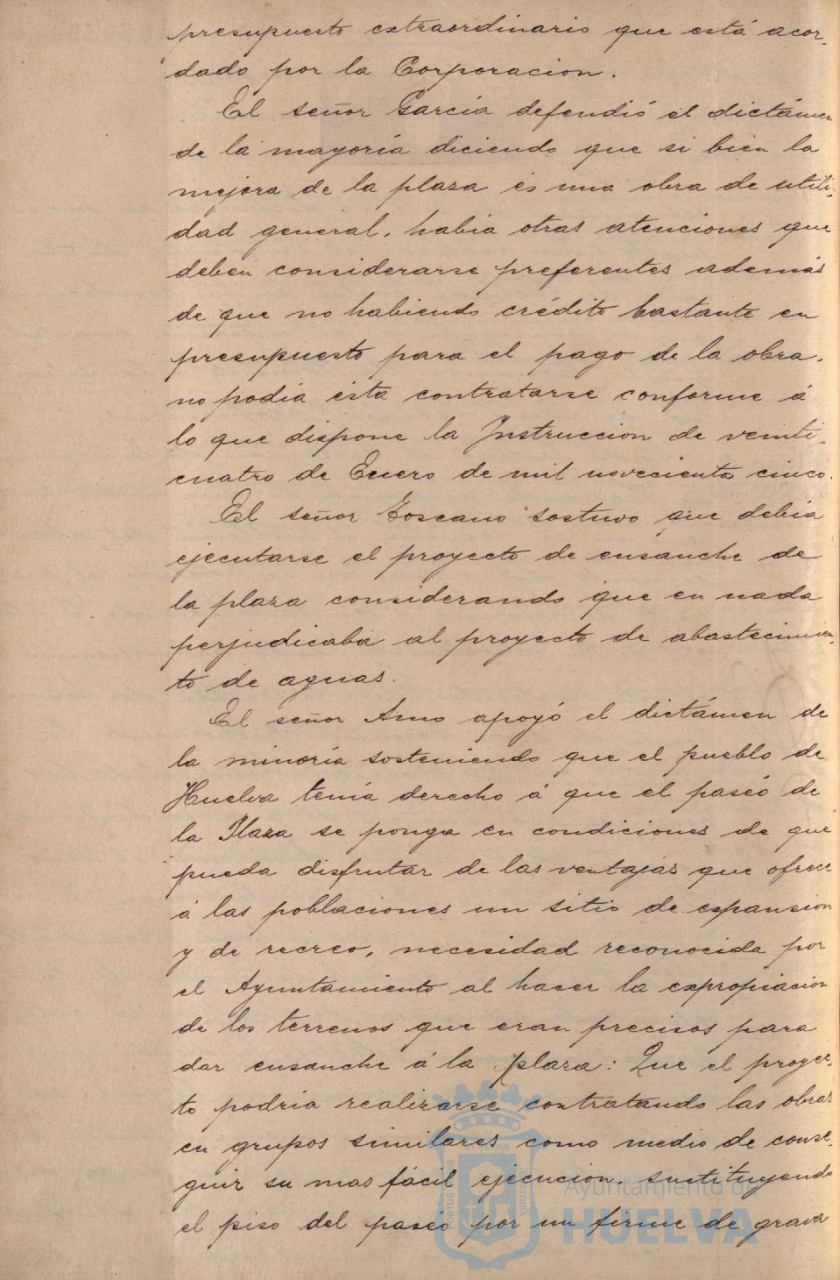 presupuesto extraordinario que está acor-
dado por la Corporacion.
El señor García defendió el dictámen
de la mayoría diciendo que si bien la
mejora de la plaza es una obra de utili-
dad general, habia otras atenciones que
deben considerarse preferentes además
de que no habiendo crédito bastante en
presupuesto para el pago de la obra,
no podia ésta contratarse conforme á
lo que dispone la Instruccion de veinti-
cuatro de Enero de mil novecientos cinco.
El señor Toscano sostuvo que debia
ejecutarse el proyecto de ensanche de
la plaza considerando que en nada
perjudicaba al proyecto de abastecimien-
to de aguas.
El señor Amo apoyó el dictámen de
la minoría sosteniendo que el pueblo de
Huelva tenía derecho á que el paséo de
la Plaza se ponga en condiciones de que
pueda disfrutar de las ventajas que ofrece
á las poblaciones un sitio de espansion
y de recreo, necesidad reconocida por
el Ayuntamiento al hacer la expropiacion
de los terrenos que eran precisos para
dar ensanche á la plaza: Que el proyec-
to podria realizarse contratando las obras
en grupos similares como medio de conse-
guir su mas fácil ejecucion, sustituyendo
el piso del paséo por un firme de grava
Ayuntamiento de
HUELVA